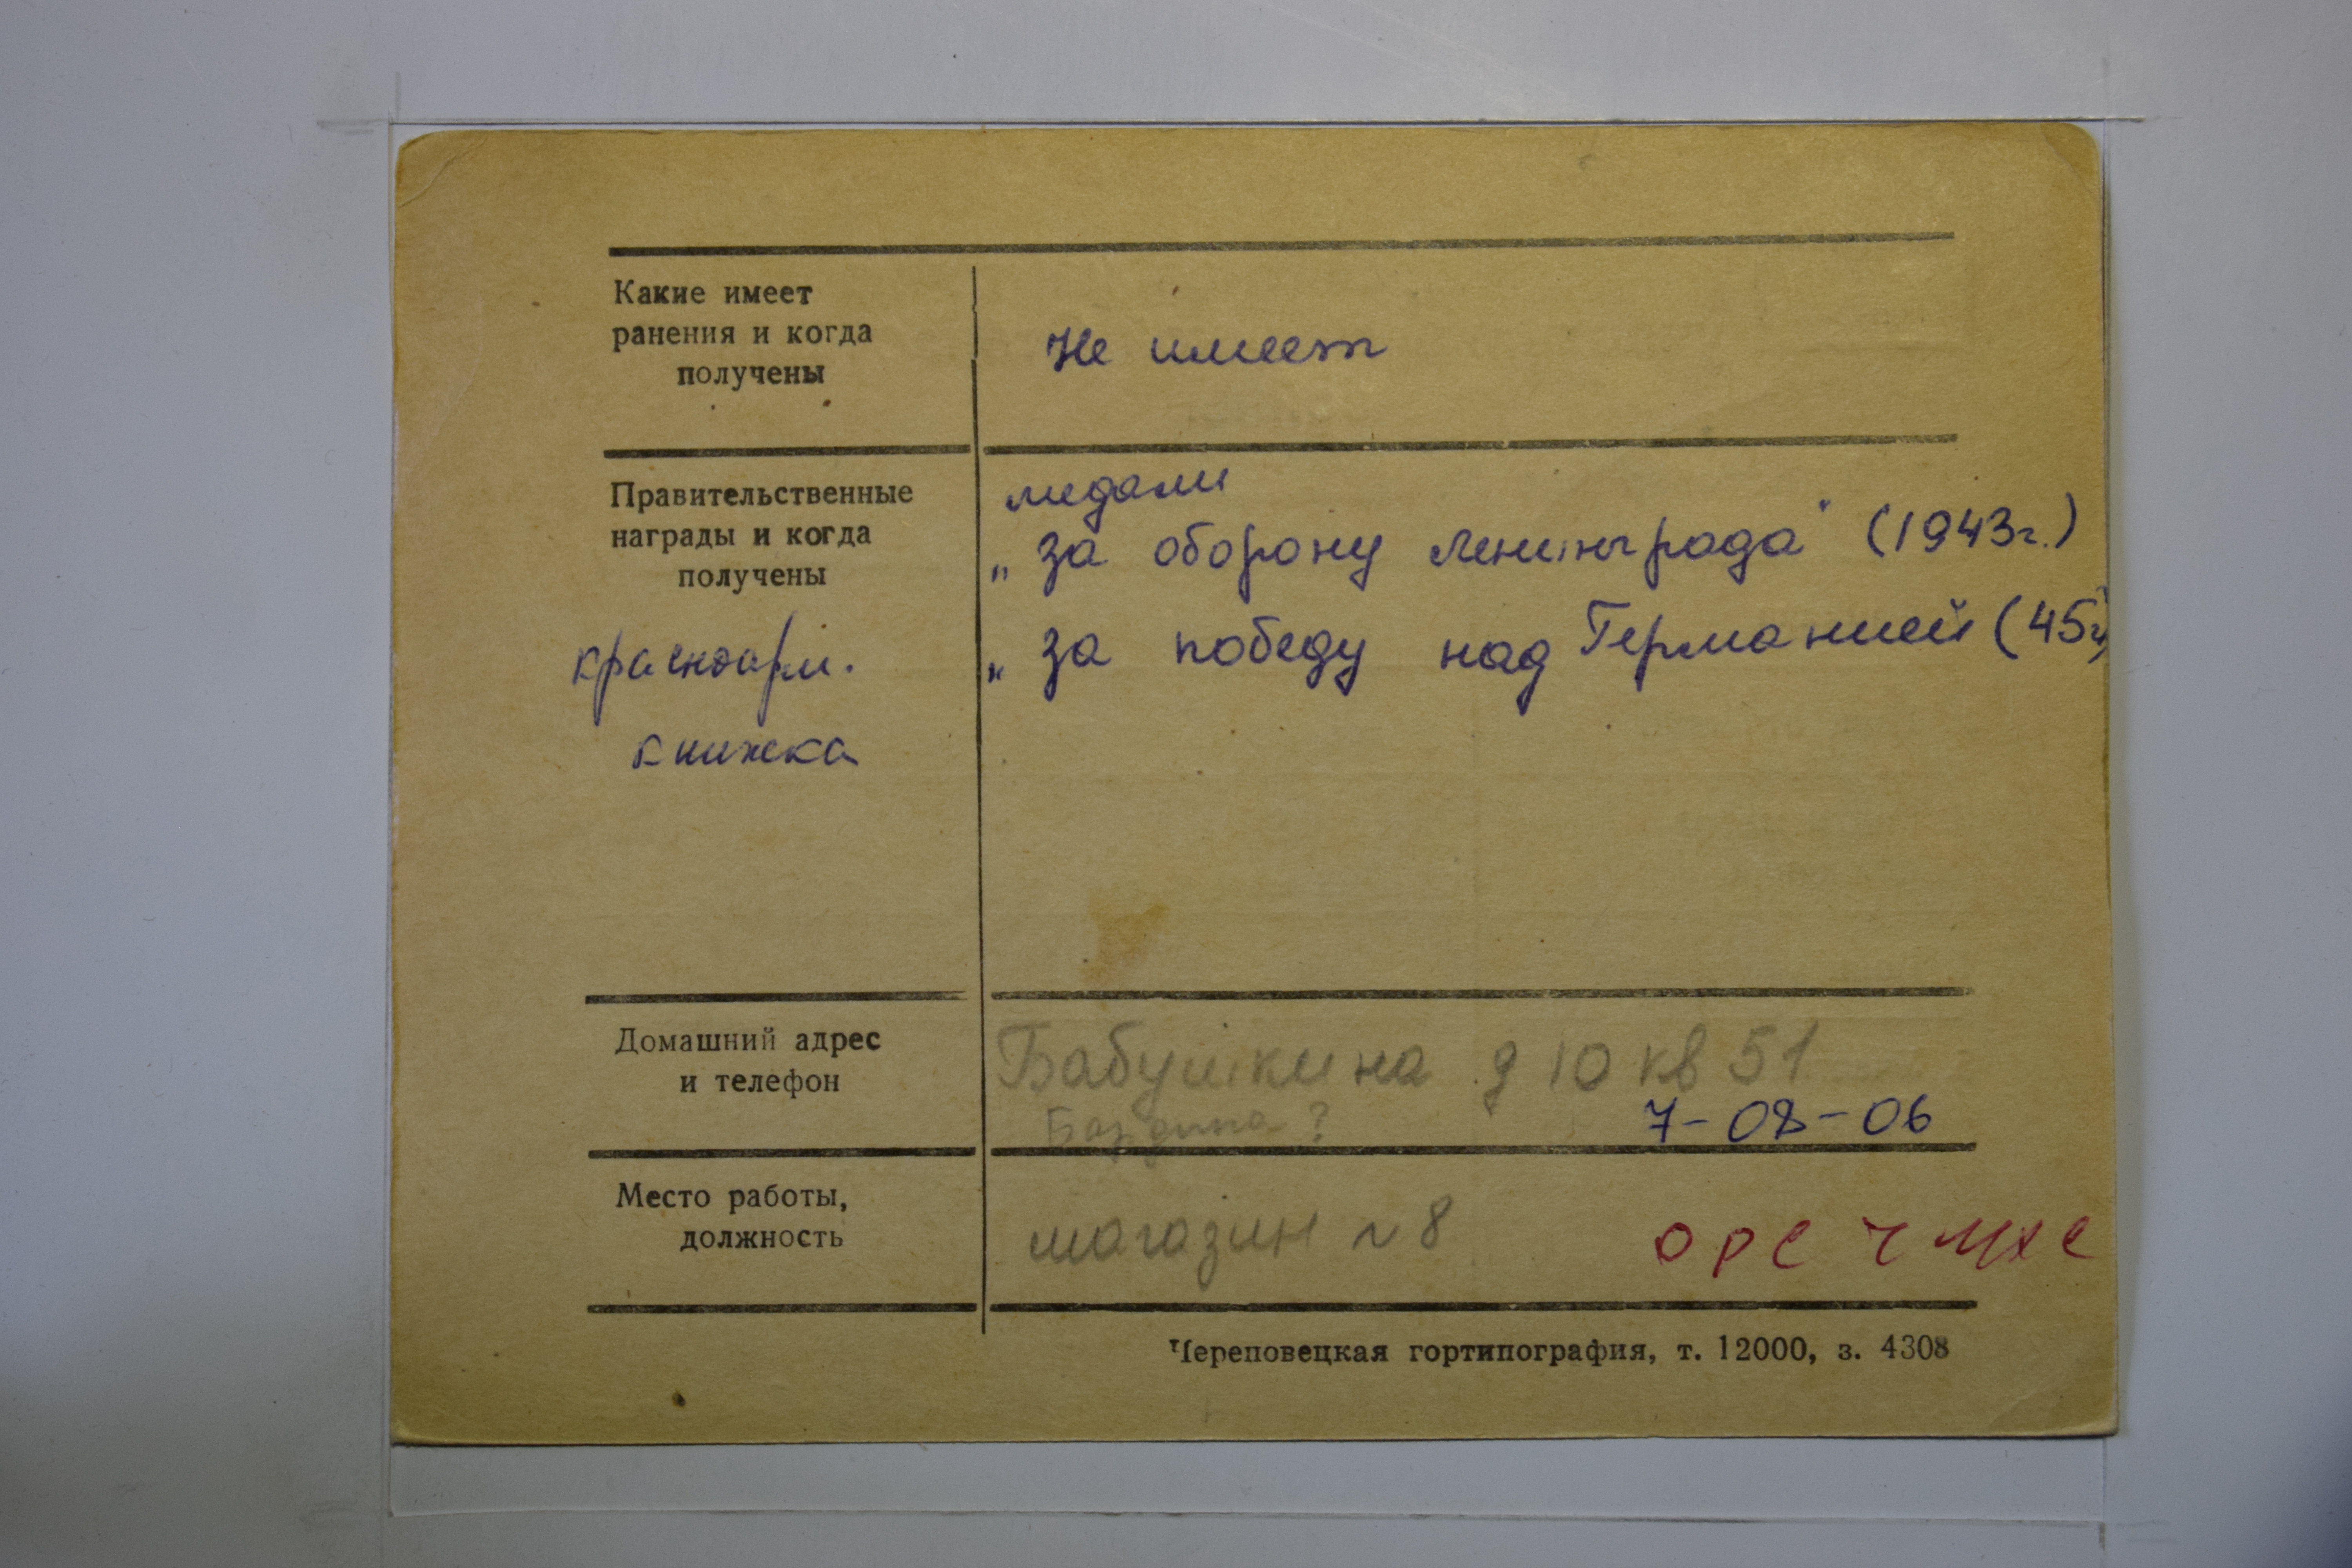 Какие имеет
ранения и когда
получены
Не имеет
Правительственные
награды и когда
получены
красноарм.
книжка
медали
„за оборону Ленинграда" (1943г.)
„за победу над Германией (45г.)
Домашний адрес
и телефон
Бабушкина д 10 кв 51
Бардина?
7-08-06
Место работы,
должность
магазин N 8
ОРС ЧМХС
Череповецкая гортипография, т. 12000, з. 4308